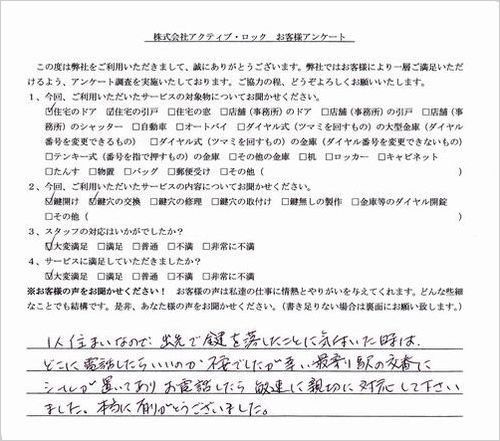 株式会社アクティブ・ロック お客様アンケート
この度は弊社をご利用いただきまして、誠にありがとうございます。弊社ではお客様により一層ご満足いただ
けるよう、アンケート調査を実施いたしております。ご協力の程、どうぞよろしくお願いいたします。
1、今回、ご利用いただいたサービスの対象物についてお聞かせください。
☑住宅のドア ☑住宅の引戸 □住宅の窓 □店舗(事務所)のドア □店舗(事務所)の引戸 □店舗(事
務所)のシャッター □自動車 □オートバイ □ダイヤル式(ツマミを回すもの)の大型金庫(ダイヤル
番号を変更できるもの) □ダイヤル式(ツマミを回すもの)の金庫(ダイヤル番号を変更できないもの)
□テンキー式(番号を指で押すもの)の金庫 □その他の金庫 □机 □ロッカー □キャビネット
□たんす □物置 □バッグ □郵便受け □その他( )
2、今回、ご利用いただいたサービスの内容についてお聞かせください。
☑鍵開け ☑鍵穴の交換 □鍵穴の修理 □鍵穴の取付け □鍵無しの製作 □金庫等のダイヤル開錠
□その他( )
3、スタッフの対応はいかがでしたか?
☑大変満足 □満足 □普通 □不満 □非常に不満
4、サービスに満足していただきましたか?
☑大変満足 □満足 □普通 □不満 □非常に不満
※お客様の声をお聞かせください! お客様の声は私達の仕事に情熱とやりがいを与えてくれます。どんな些細
なことでも結構です。是非、あなた様の声をお聞かせください。(書き足りない場合は裏面にお願い致します。)
1人住まいなので、出先で鍵を落したことに気付いた時は、
どこに電話したらいいのか不安でしたが幸い最寄り駅の交番に
シールが置いてありお電話したら敏速に親切に対応して下さい
ました。本当に有りがとうございました。